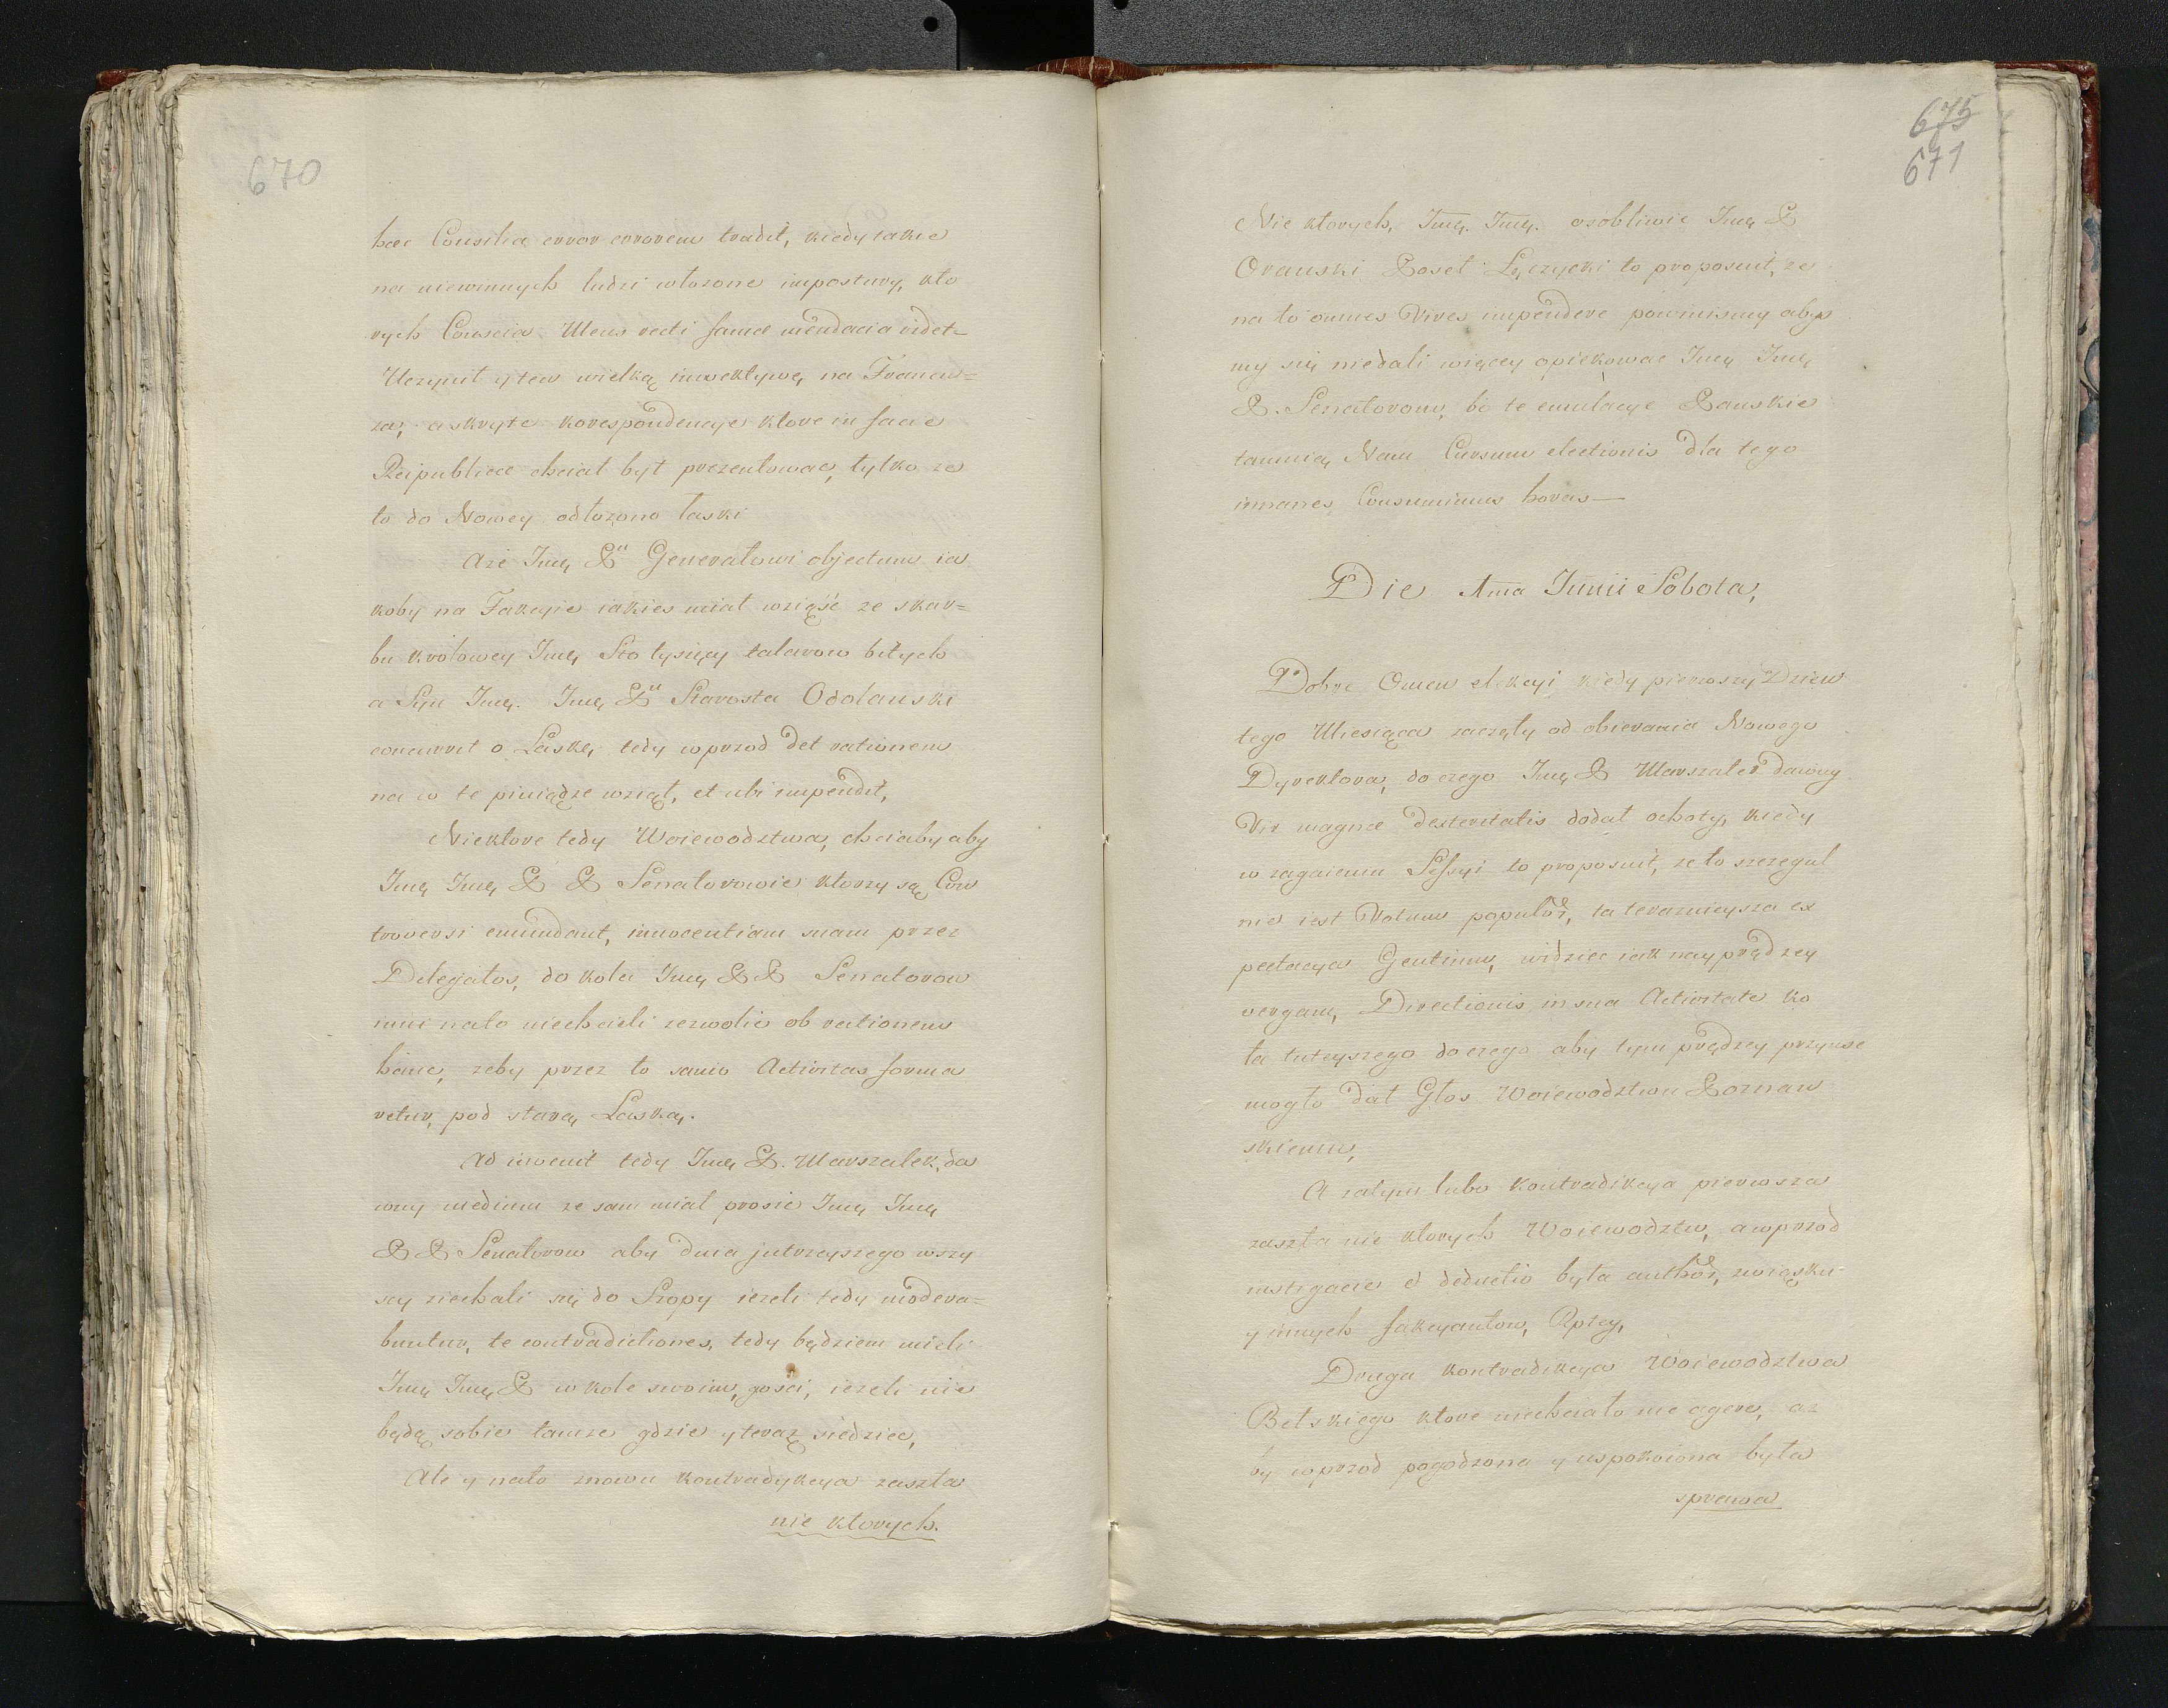 670
hæc Consilia error errorem tradit, kiedy takie
na niewinnych ludzi włozone impostury, kto
rych Conscia Mens recti famæ mendacia ridet
Uczynił y ten wielką inwektywę na Francu=
za, a skryte korespondencye ktore in facie
Reipublicæ chciał był prezentowac, tylko ze
to do Nowey odłozono laski
Aże Jmę Pu Generałowi objectum ia
koby na Fakcyie iakies miał wziąść ze skar=
bu krolowey Jmę Sto tysięcy talarow bitych
a Syn Jmę. Jmę Pn Starosta Odolanski
concurrit o Laskę, tedy wprzod det rationem
na co te piniądze wziął, et ubi impendit,
Niektore tedy Woiewodztwa, chciały aby
Jmę Jmę P P Senatorowie ktorzy są Con
troversi emundant, innocentiam suam przez
Delegatos, do koła Jmę P P Senatorow
inni nato niechcieli zezwolic ob rationem
hanc, zeby przez to samo Activitas forma
retur, pod starą Laską.
Ad invenit tedy Jmę P. Marszałek, da
wny medium ze sam miał prosic Jmę Jmę
P P Senatorow aby dnia jutrzeyszego wszy
scy ziechali się do Szopy iezeli tedy modera=
buntur, te contradictiones, tedy będziem mieli
Jmę Jmę P w kole swoim, gosci, iezeli nie
będą sobie tamze gdzie y teraz siedziec,
Ale y nato znowu kontradykcya zaszła
nie ktorych.
675
671
Nie ktorych, Jmę. Jmę. osobliwie Jmę P
Oranski Poseł Lęczycki to proposuit, ze
na to omnes Vires impendere powinismy abys
my się niedali więcey opiekowac Jmę Jmę
P. Senatorom, bo te emulacye Panskie
tamuią Nam Cursum electionis dla tego
innanes Consumimus horas—
Die 1ma Junii Sobota,
Dobre Omen elekcyi kiedy pierwszy Dzien
tego Miesiąca zaczęty od obierania Nowego
Dyrektora, do czego Jmę P Marszałek dawny
Vir magnæ dexteritatis dodał ochoty, kiedy
w zagaieniu Sessyi to proposuit, ze to szczegul
nie iest Votum populor, ta teraznieysza ex
pectacya Gentium, widziec iak nayprędzey
vergam, Directionis in sua Activitate ko
ła tuteyszego do czego aby tym prędzey przyisc
mogło dał Głos Woiewodztwu Poznan
skiemu,
A zatym lubo kontradikcya pierwsza
zaszła nie ktorych Woiewodztw, a wprzod
instigacie et deductio była author, związku
y innych fakcyantow, Aptey,
Druga kontradikcya Woiewodztwa
Bełskiego ktore niechciało nic agere, az
by wprzod pogodzona y uspokoiona była
sprawa